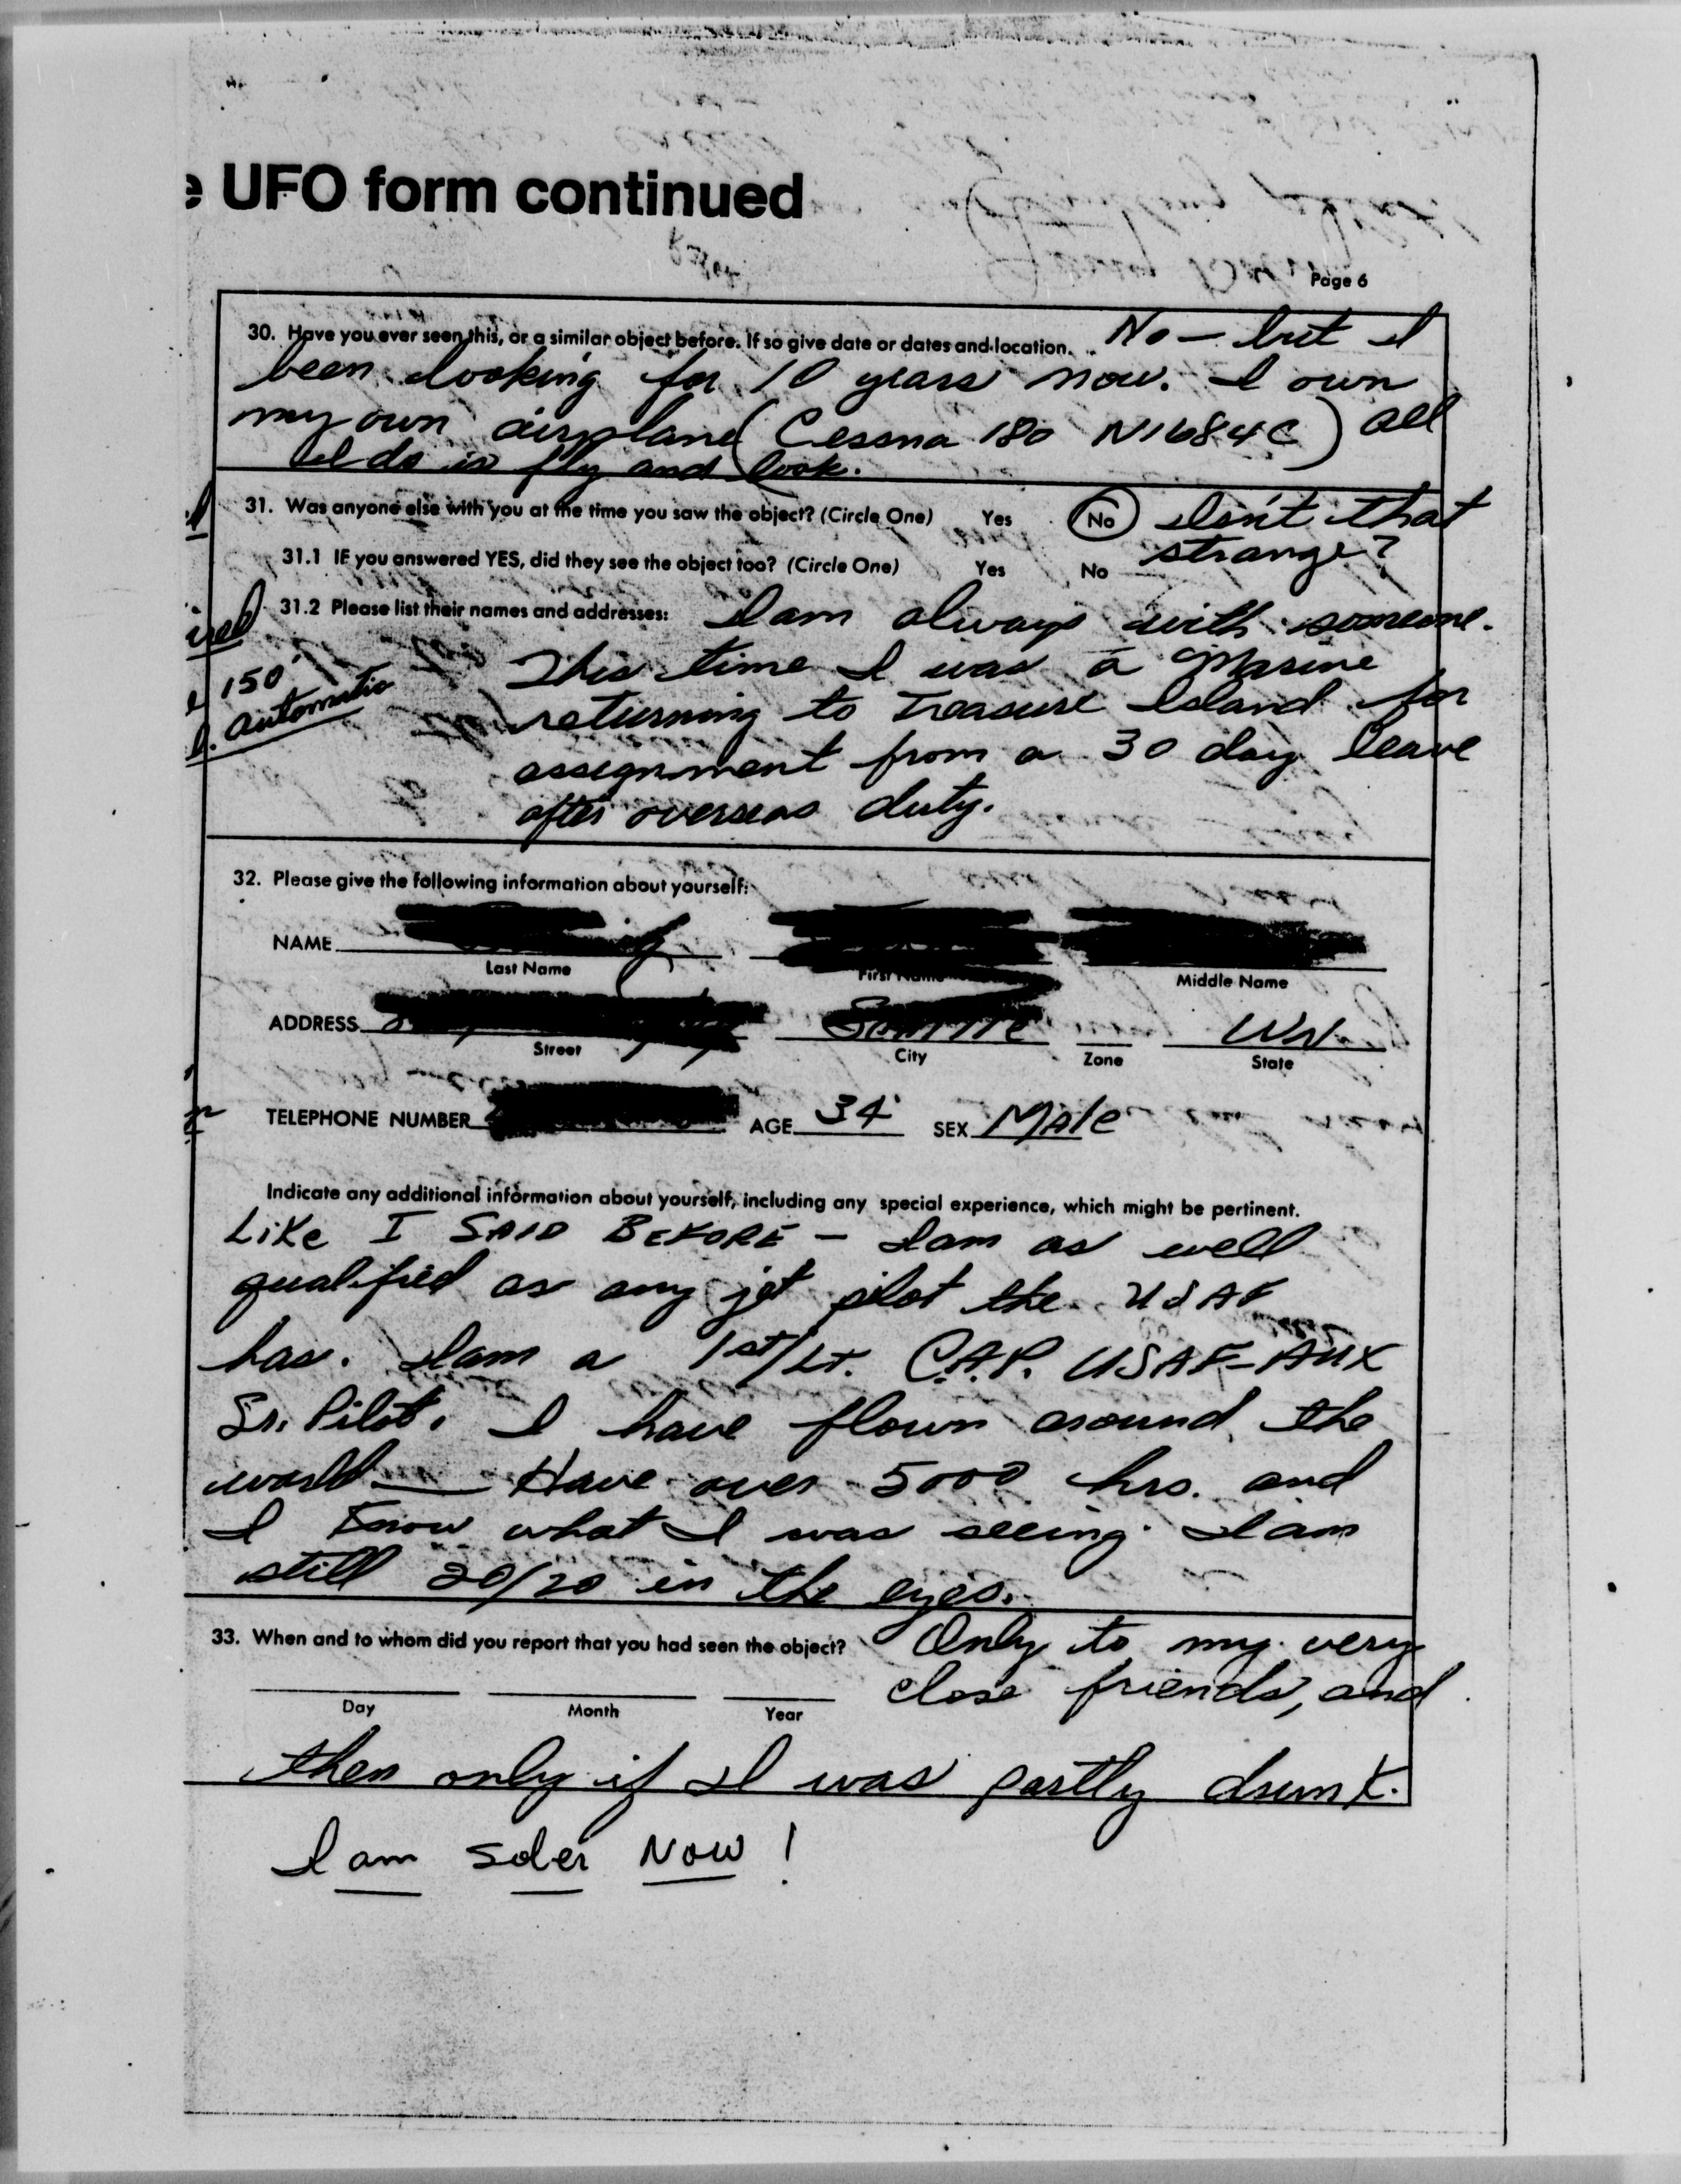 UFO form continued
Page 6
30. Have you ever seen this, or a similar object before. If so give date or dates and location. No — but I
been looking for 10 years now. I own
my own airplane (Cessna 180 N1684C) All
I do is fly and look.
31. Was anyone else with you at the time you saw the object? (Circle One) Yes No Isn't that
strange?
31.1 IF you answered YES, did they see the object too? (Circle One) Yes No
31.2 Please list their names and addresses: I am always with someone.
150'
automatic
This time I was a Marine
returning to Treasure Island for
assignment from a 30 day leave
after overseas duty.
32. Please give the following information about yourself:
NAME
Last Name First Name Middle Name
ADDRESS Seattle Wn
Street City Zone State
TELEPHONE NUMBER AGE 34 SEX Male
Indicate any additional information about yourself, including any special experience, which might be pertinent.
Like I SAID BEFORE — I am as well
qualified as any jet pilot the USAF
has. I am a 1st/Lt. C.A.P. USAF-AUX
Sr. Pilot. I have flown around the
world — Have over 5000 hrs. and
I know what I was seeing. I am
still 20/20 in the eyes.
33. When and to whom did you report that you had seen the object? Only to my very
close friends, and
Day Month Year
then only if I was partly drunk.
I am sober NOW!